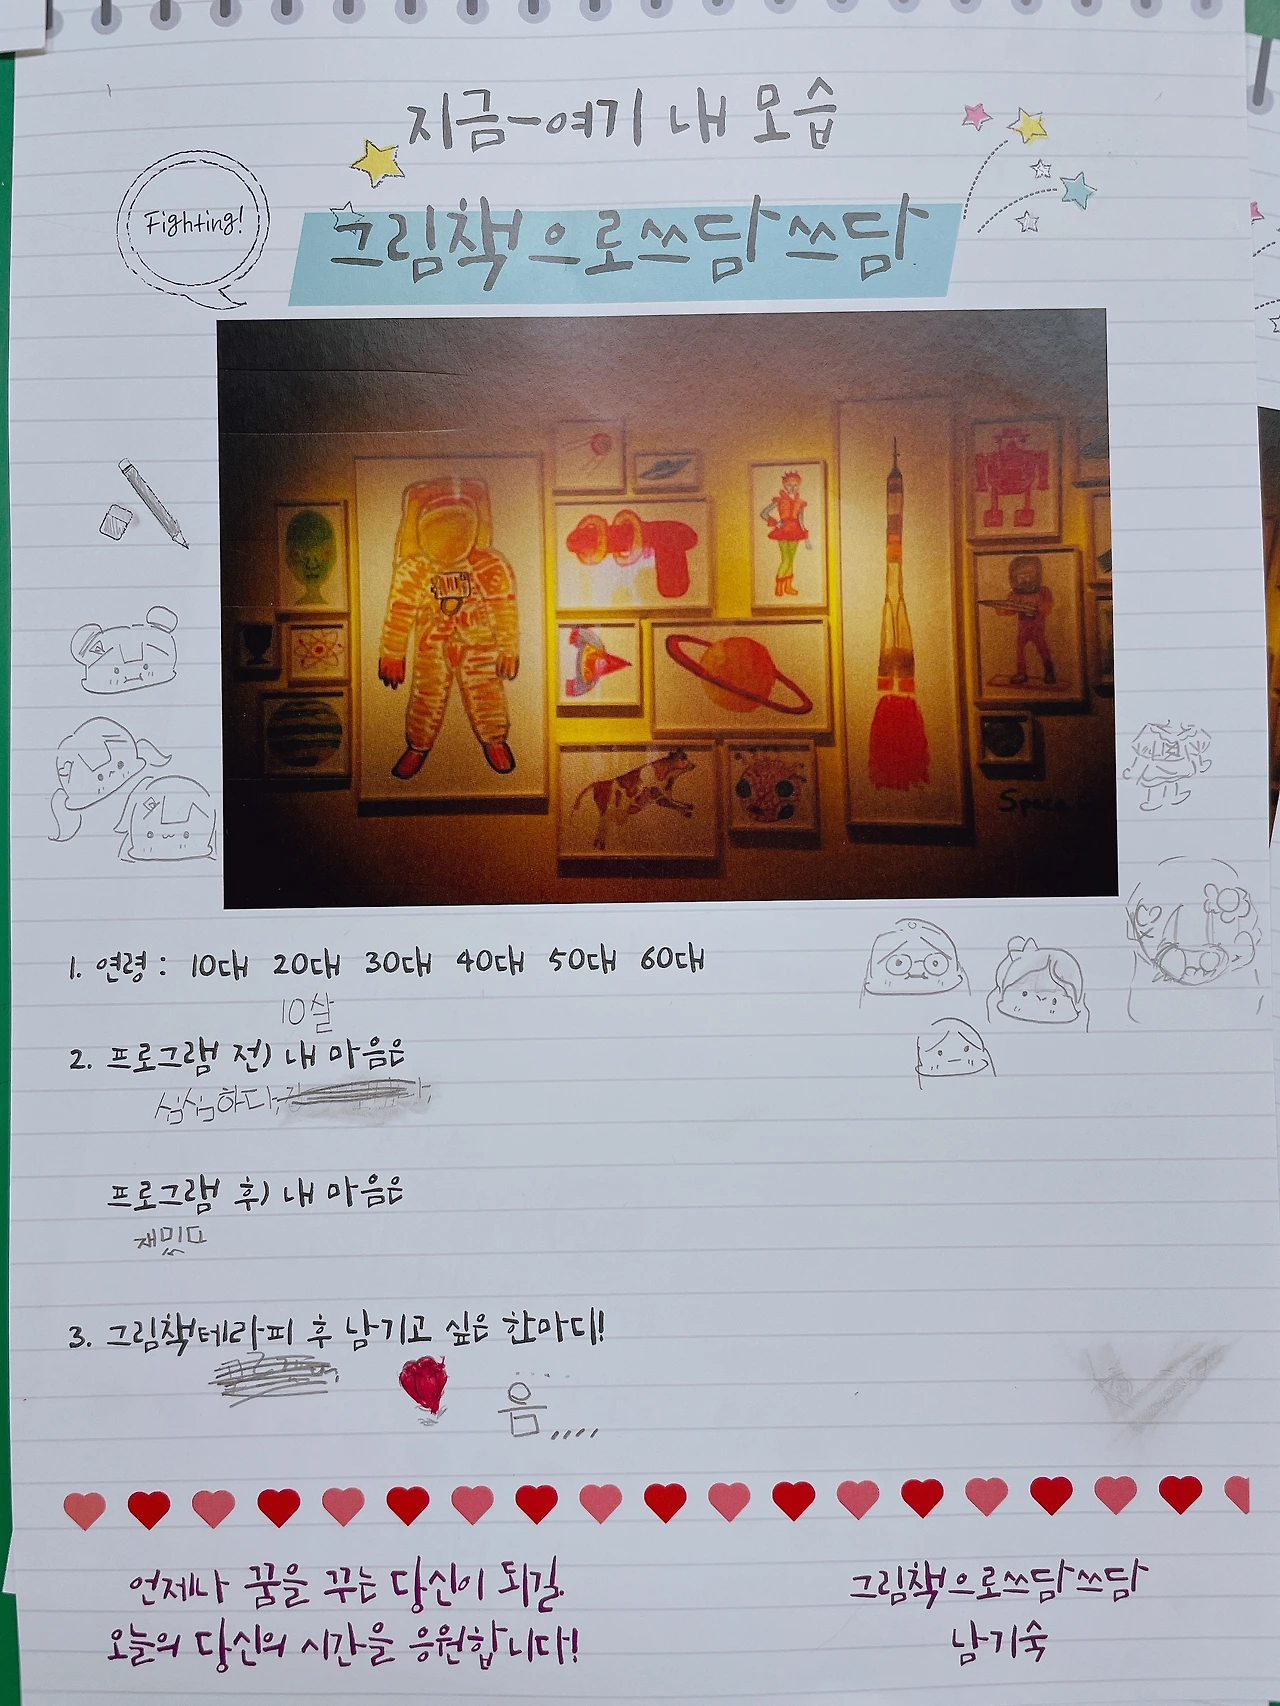 지금-여기 내 모습
Fighting!
그림책으로쓰담쓰담
Space
1. 연령 : 10대 20대 30대 40대 50대 60대
10살
2. 프로그램 전) 내 마음은
심심하다,
프로그램 후) 내 마음은
재밌다
3. 그림책테라피 후 남기고 싶은 한마디!
음,,,,
언제나 꿈을 꾸는 당신이 되길.
오늘의 당신의 시간을 응원합니다!
그림책으로쓰담쓰담
남기숙